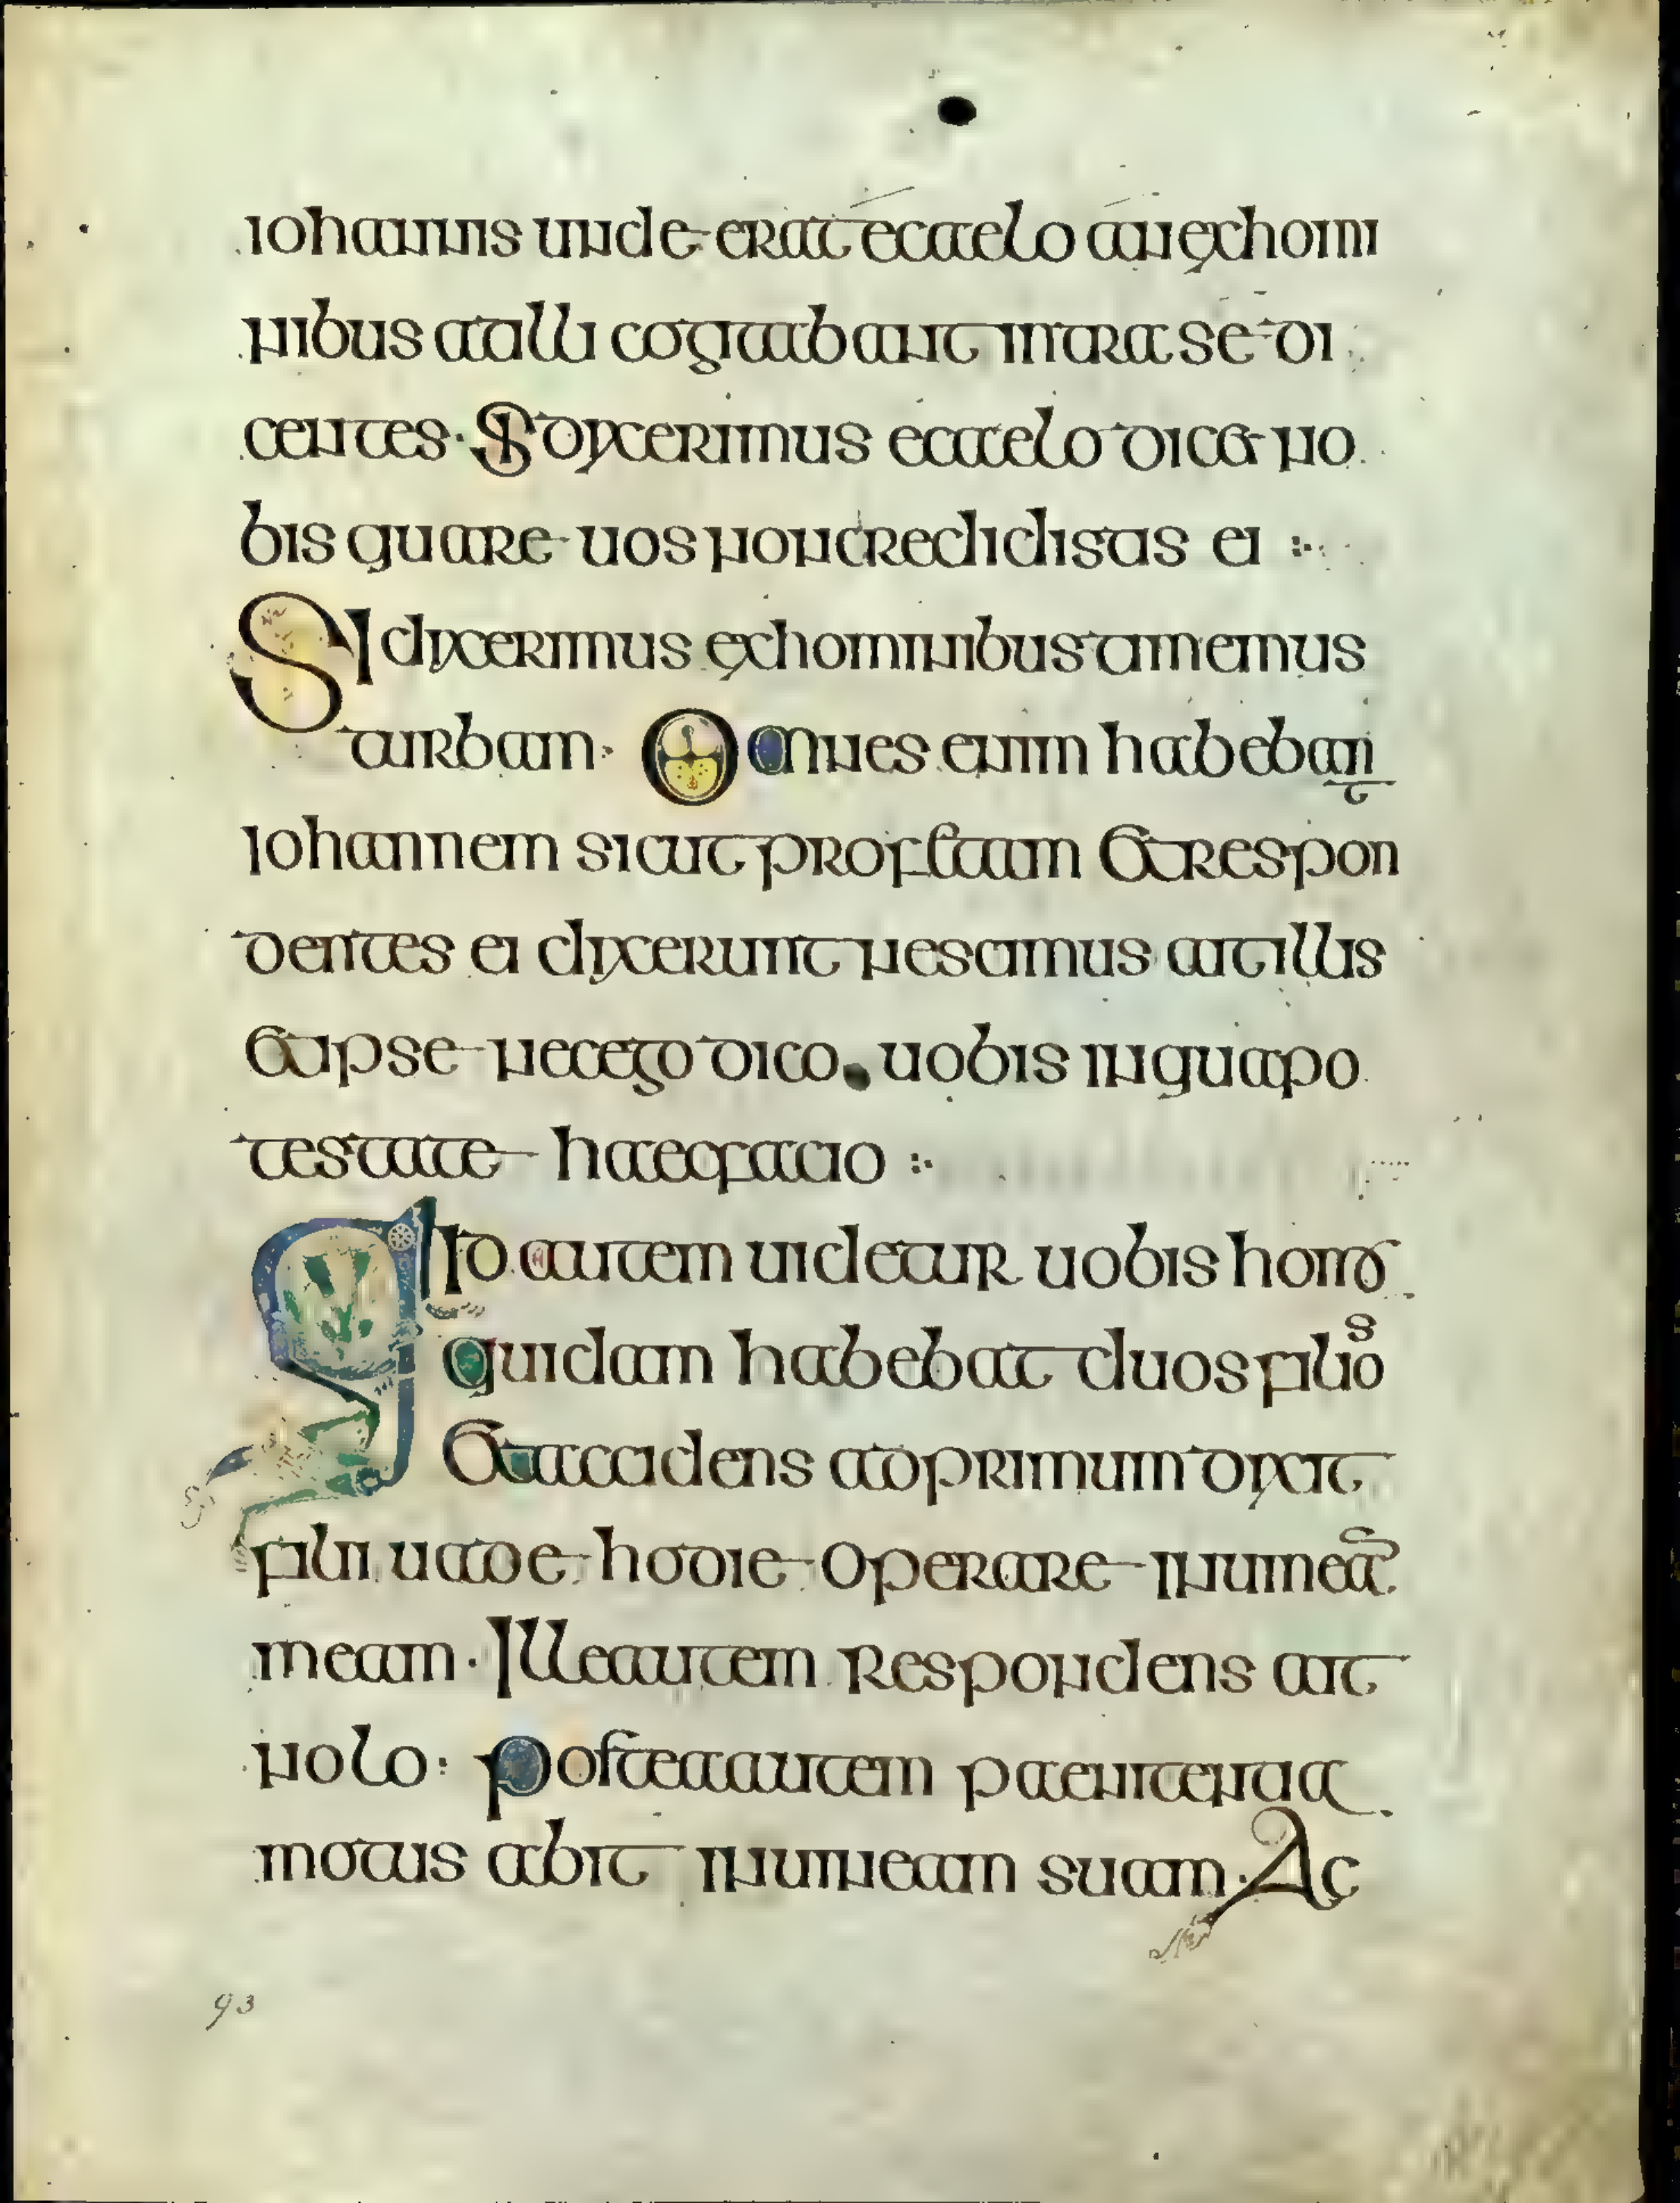 iohannis unde erat e caelo an ex homi
nibus at illi cogitabant intra se di
centes · Si dixerimus e caelo dicet no
bis quare uos non credidistis ei :·
SI dixerimus ex hominibus timemus
turbam · Omnes enim habebant
Iohannem sicut profetam Et respon
dentes ei dixerunt nescimus ait illis
Et ipse nec ego dico uobis in qua po
testate haec facio :·
Quid autem uidetur uobis homo
quidam habebat duos filios
Et accidens ad primum dixit
fili uade hodie operare in uinea
meam · Ille autem respondens ait
nolo : postea autem paenitentia
motus abiit in uineam suam · Ac
93